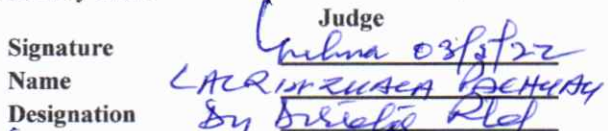 Judge
Signature 03/3/22
Name LALRINZUALA PACHUAU
Designation Dy Director Rtd